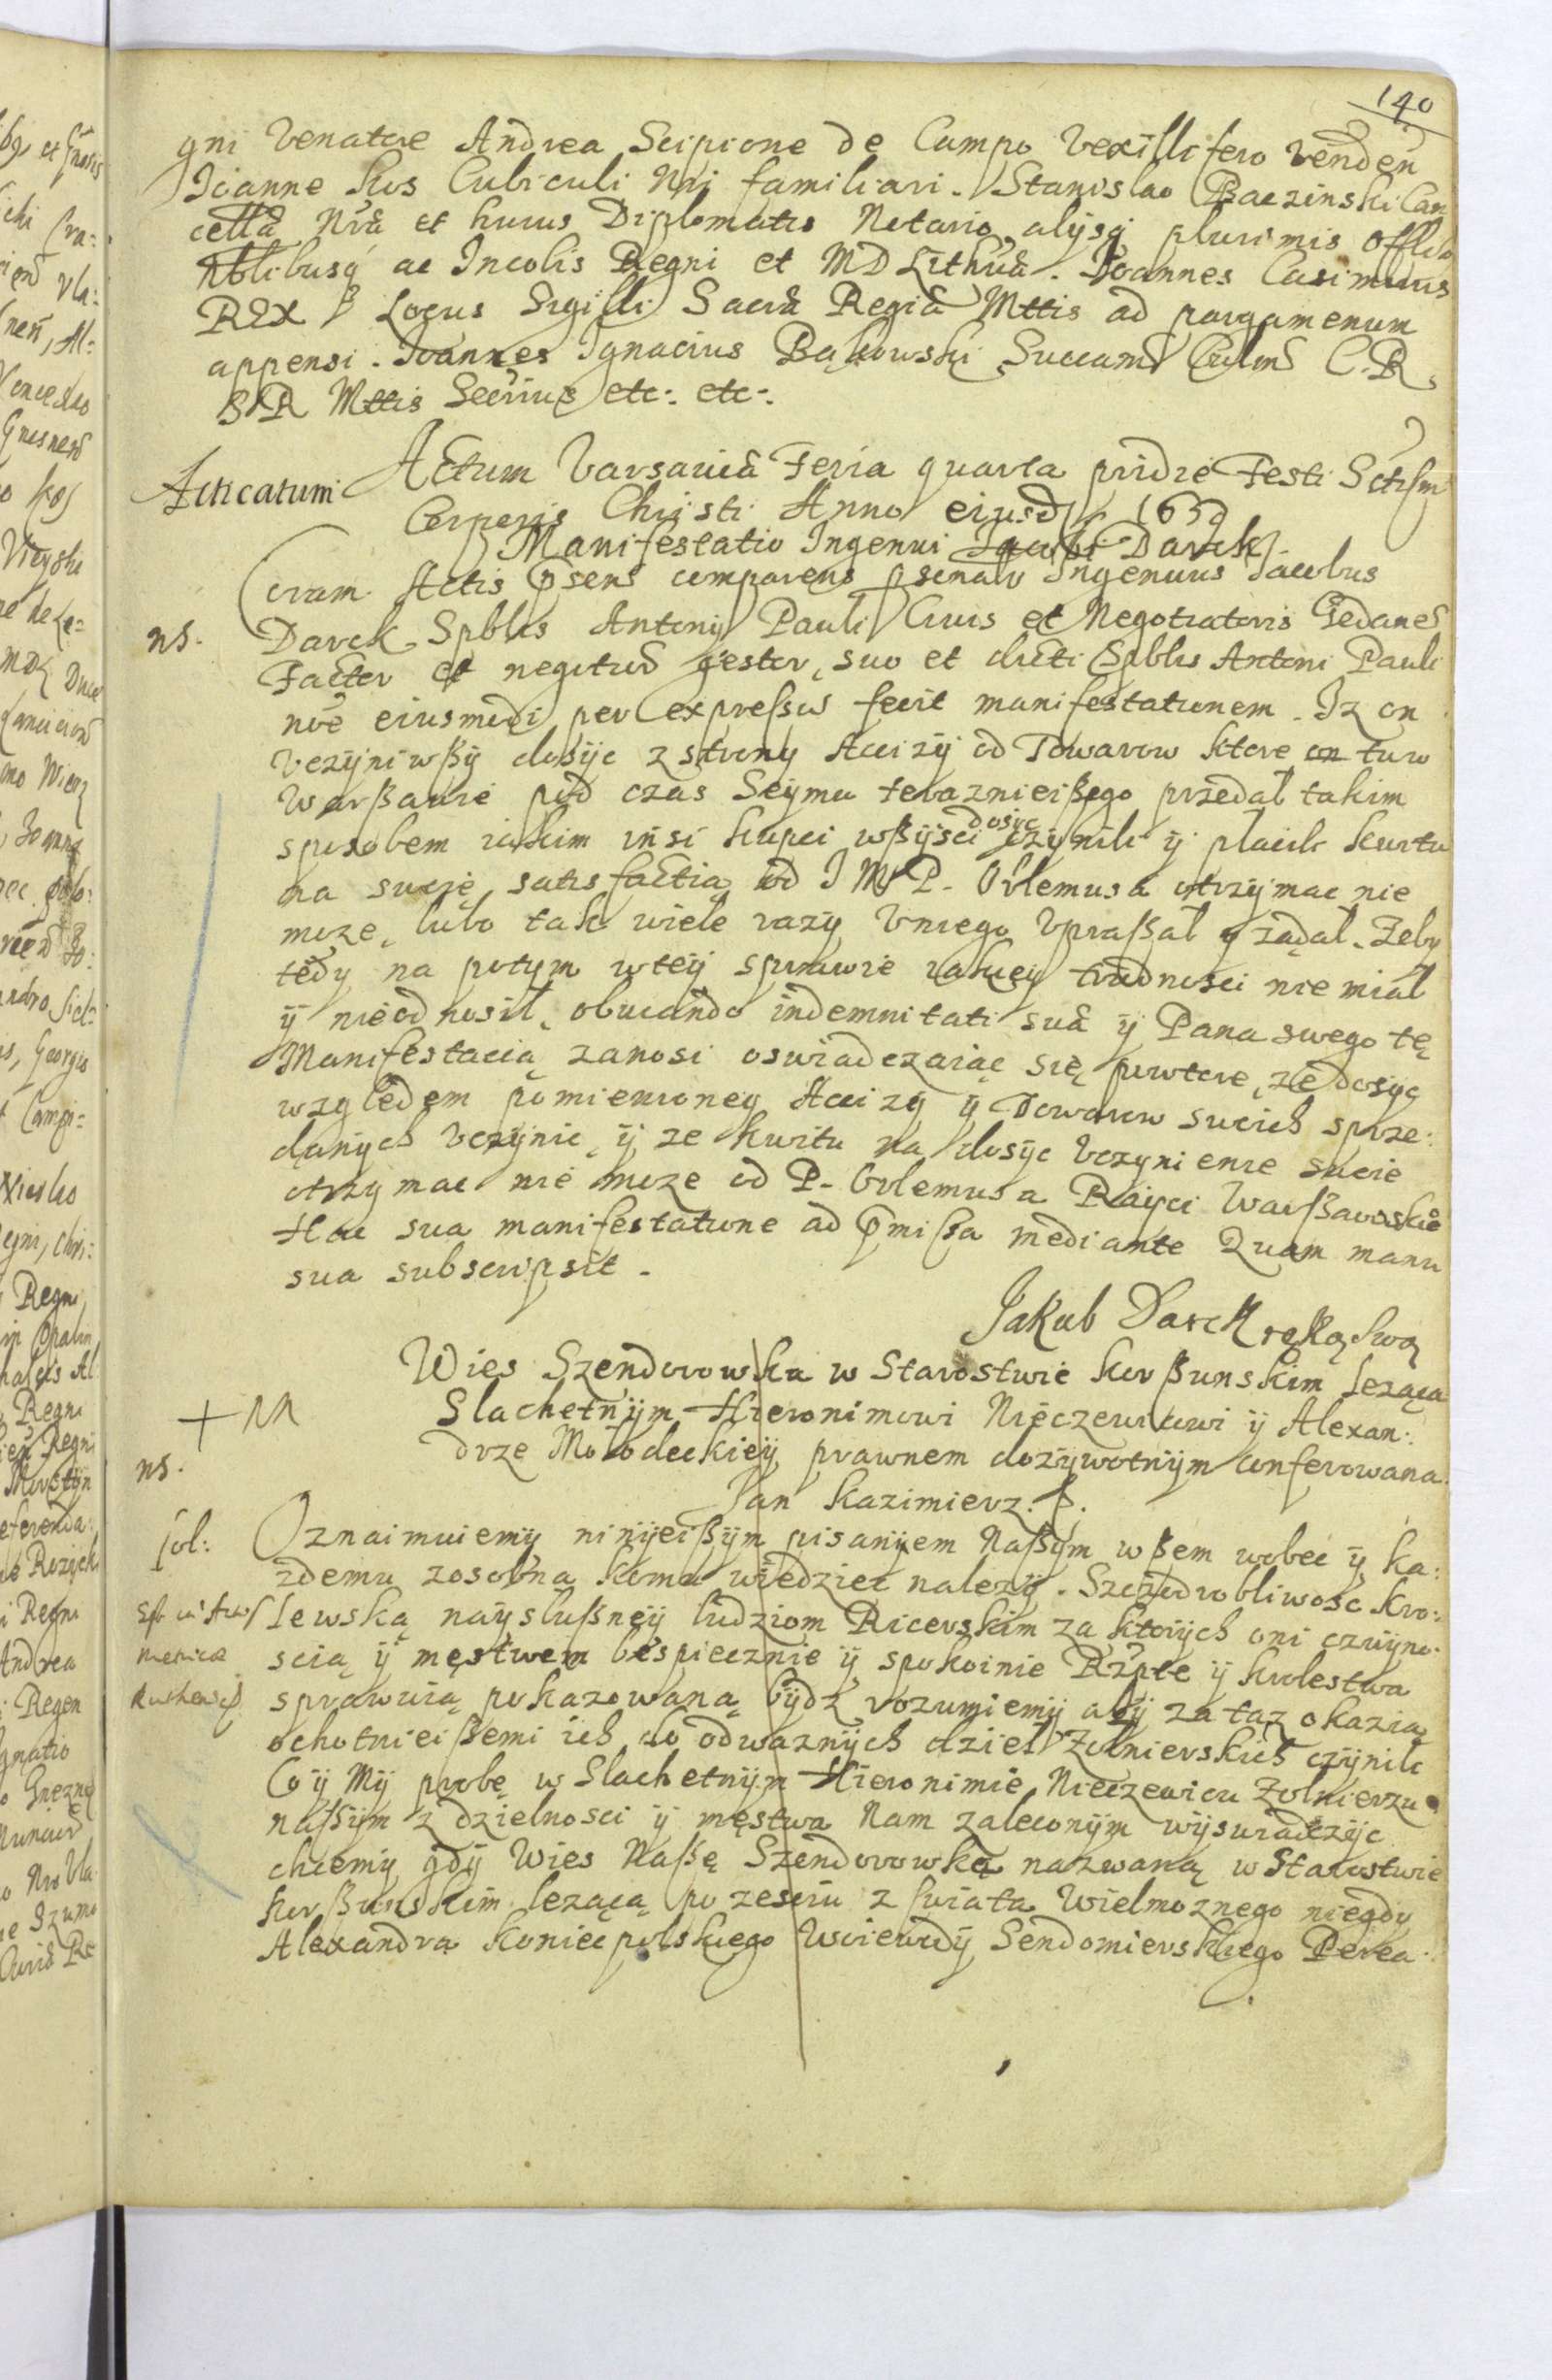 140
gni Venatore Andrea Scipione de Campo Vexillifero Venden
Joanne Kos Cubiculi Nri familiari. Stanislao Baczinski Can
cella Nra et huius Diplomatis Notario, alijsq plurimis Offici
Nblibusq ac Incolis Regni et MD Lithua. Joannes Casimirus
REX Locus Sigilli Sacra Regia Mttis ad pargamenum
appensi. Joannes Ignacius Bąkowski Succam Culm C. R.
S R Mttis Secrius etc: etc:
Acticatum
Actum Varsavia Feria quarta pridie Festi Sctissm
Corporis Christi Anno eiusd 1659
Manifestatio Ingenui Jacobi Darck
Coram Actis psens comparens psonalr Ingenuus Jacobus
ns.
Darck Spblis Antonij Pauli Civis et Negotiatoris Gedanes
Factor et negotior gestor, suo et dicti Spblis Antoni Pauli
noe eiusmodi per expressu fecit manifestationem. Iz on
vczyniwßy dosyc z strony Accizy od Towarow ktore on tu w
Warßawie pod czas Seymu teraznieißego przedal takim
sposobem iakim insi kupci wßysci dosyc czynili y placili kwitu
na swoię satisfactią od J M P. Orlemusa otrzymac nie
moze, lubo tak wiele razy Vniego Vpraßal y ządal. Zeby
tedy na potym w tey sprawie iakiey trudnosci nie mial
y nieodnosil, obuiando indemnitati sua y Pana swego tę
Manifestacią zanosi oswiadczaiąc się powtore, ze dosyc
względem pomienioney Accizy y Towarow swoich sprze:
danych Vczynic, y ze kwitu na dosyc Vczynienie swoie
otrzymac nie moze od P. Orlemusa Raycy Warßawskie
Hac sua manifestatione ad pmissa mediante Quam manu
sua subscripsit.
Jakub Darck ręką swą
Wies Szendorowka w Starostwie korßunskim lezaca
+ M
Slachetnym Hieronimowi Nieczewicowi y Alexan:
drze Molodeckiey prawnem dozywotnym conferowana.
ns.
Jan Kazimierz.
sol:
Oznaimuiemy ninyeißym pisanyem Naßym wßem wobec y ka:
zdemu zosobna komu wiedziec nalezy. Szczodrobliwosc Kro:
lewską naysłußney ludziom Ricerskim za ktorych oni czuyno:
Metrica
scią y męstwem bespiecznie y spokoinie Rzpte y krolestwa
sprawuią pokazowaną bydz rozumiemy aby za taz okazią
ochotnieißemi ich do odwaznych dziel Zolnierskich czynilo
Co y My probę w Slachetnym Hieronimie Nieczewicu Zolnierzu
naßym z dzielnosci y męstwa Nam zaleconym wyswiadczyc
chcemy gdy Wies Naßę Szendorowkę nazwaną w Starostwie
korßunskim lezącą po zesciu z swiata Wielmoznego niegdy
Alexandra Koniecpolskiego Woiewody Sendomierskiego Perea: